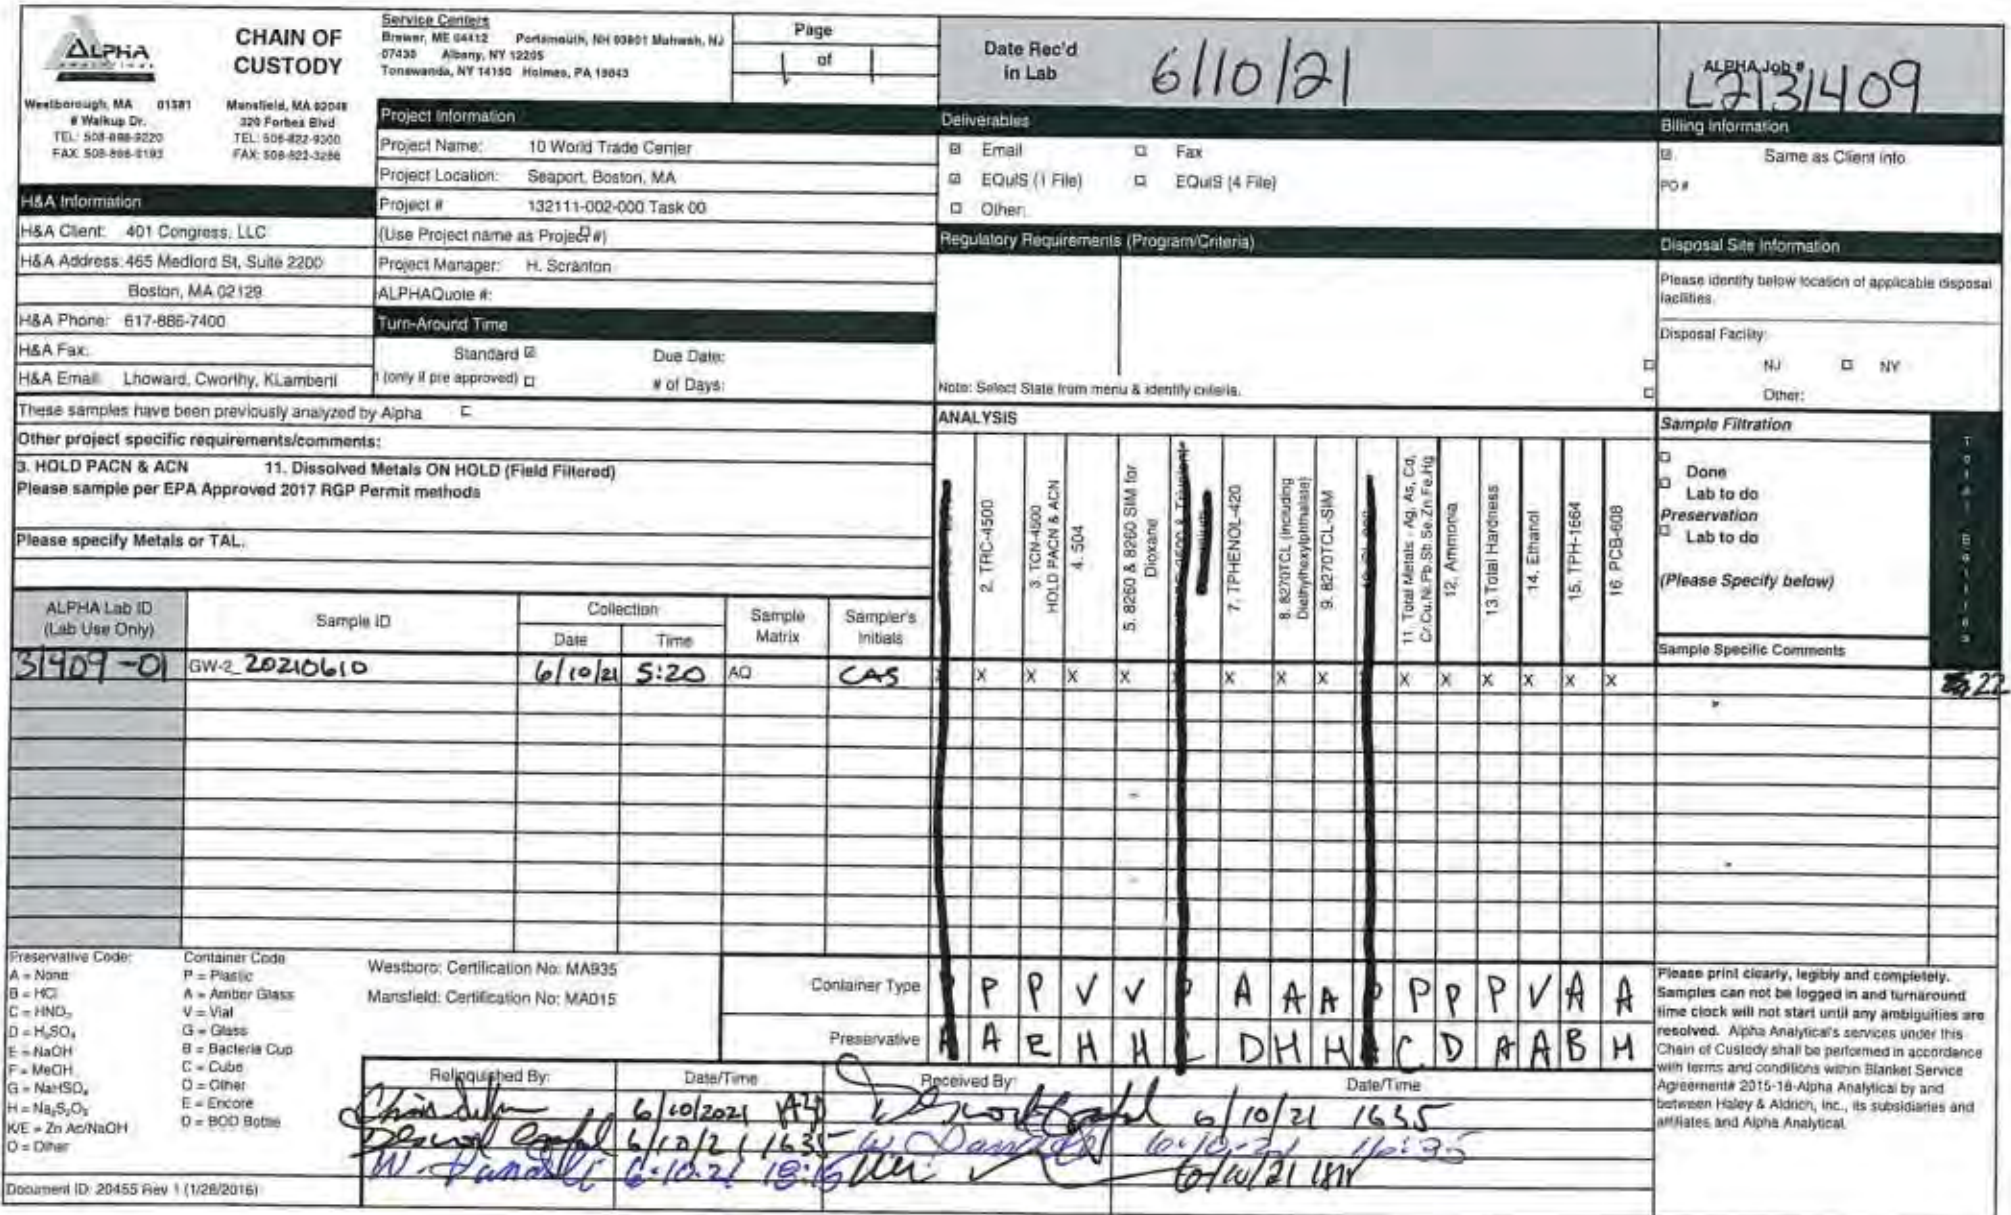 ALPHA
CHAIN OF
CUSTODY
Westborough, MA 01581
8 Walkup Dr.
TEL: 508-898-9220
FAX: 508-898-9193
Mansfield, MA 02048
320 Forbes Blvd
TEL: 508-822-9300
FAX: 508-822-3288
Service Centers
Brewer, ME 04412 Portsmouth, NH 03801 Mahwah, NJ
07430 Albany, NY 12205
Tonawanda, NY 14150 Holmes, PA 19043
Page
1 of 1
Date Rec'd
in Lab
6/10/21
ALPHA Job #
L2131409
H&A Information
H&A Client: 401 Congress, LLC
H&A Address: 465 Medford St, Suite 2200
Boston, MA 02129
H&A Phone: 617-886-7400
H&A Fax:
H&A Email: Lhoward, Cworthy, KLamberti
Project Information
Project Name: 10 World Trade Center
Project Location: Seaport, Boston, MA
Project # 132111-002-000 Task 00
(Use Project name as Project #)
Project Manager: H. Scranton
ALPHAQuote #:
Turn-Around Time
Standard Due Date:
(only if pre approved) # of Days:
Deliverables
Email Fax
EQuIS (1 File) EQuIS (4 File)
Other:
Regulatory Requirements (Program/Criteria)
Note: Select State from menu & identify criteria.
Billing Information
Same as Client Info
PO #
Disposal Site Information
Please identify below location of applicable disposal
facilities.
Disposal Facility:
NJ NY
Other:
These samples have been previously analyzed by Alpha
Other project specific requirements/comments:
3. HOLD PACN & ACN 11. Dissolved Metals ON HOLD (Field Filtered)
Please sample per EPA Approved 2017 RGP Permit methods
Please specify Metals or TAL.
ANALYSIS
2. TRC-4500
3. TCN-4500
HOLD PACN & ACN
4. 504
5. 8260 & 8260 SIM for
Dioxane
7. TPHENOL-420
8. 8270TCL (including
Diethylhexylphthalate)
9. 8270TCL-SIM
11. Total Metals - Ag, As, Cd,
Cr,Cu,Ni,Pb,Sb,Se,Zn,Fe,Hg
12. Ammonia
13.Total Hardness
14. Ethanol
15. TPH-1664
16. PCB-608
Sample Filtration
Done
Lab to do
Preservation
Lab to do
(Please Specify below)
Sample Specific Comments
Total Bottles
ALPHA Lab ID
(Lab Use Only)
Sample ID
Collection
Date Time
Sample
Matrix
Sampler's
Initials
31409-01 GW-2_20210610 6/10/21 5:20 AQ CAS X X X X X X X X X X X X X 22
Preservative Code:
A = None
B = HCl
C = HNO3
D = H2SO4
E = NaOH
F = MeOH
G = NaHSO4
H = Na2S2O3
K/E = Zn Ac/NaOH
O = Other
Container Code
P = Plastic
A = Amber Glass
V = Vial
G = Glass
B = Bacteria Cup
C = Cube
O = Other
E = Encore
D = BOD Bottle
Westboro: Certification No: MA935
Mansfield: Certification No: MA015
Container Type P P V V A A A P P P V A A
Preservative A A E H H D H H C D A A B H
Relinquished By: Date/Time Received By: Date/Time
6/10/2021 6/10/21 1635
6/10/21 1635 6-10-21 16:35
6-10-21 18:15 6/10/21
Please print clearly, legibly and completely.
Samples can not be logged in and turnaround
time clock will not start until any ambiguities are
resolved. Alpha Analytical's services under this
Chain of Custody shall be performed in accordance
with terms and conditions within Blanket Service
Agreement# 2015-18-Alpha Analytical by and
between Haley & Aldrich, Inc., its subsidiaries and
affiliates and Alpha Analytical.
Document ID: 20455 Rev 1 (1/28/2016)